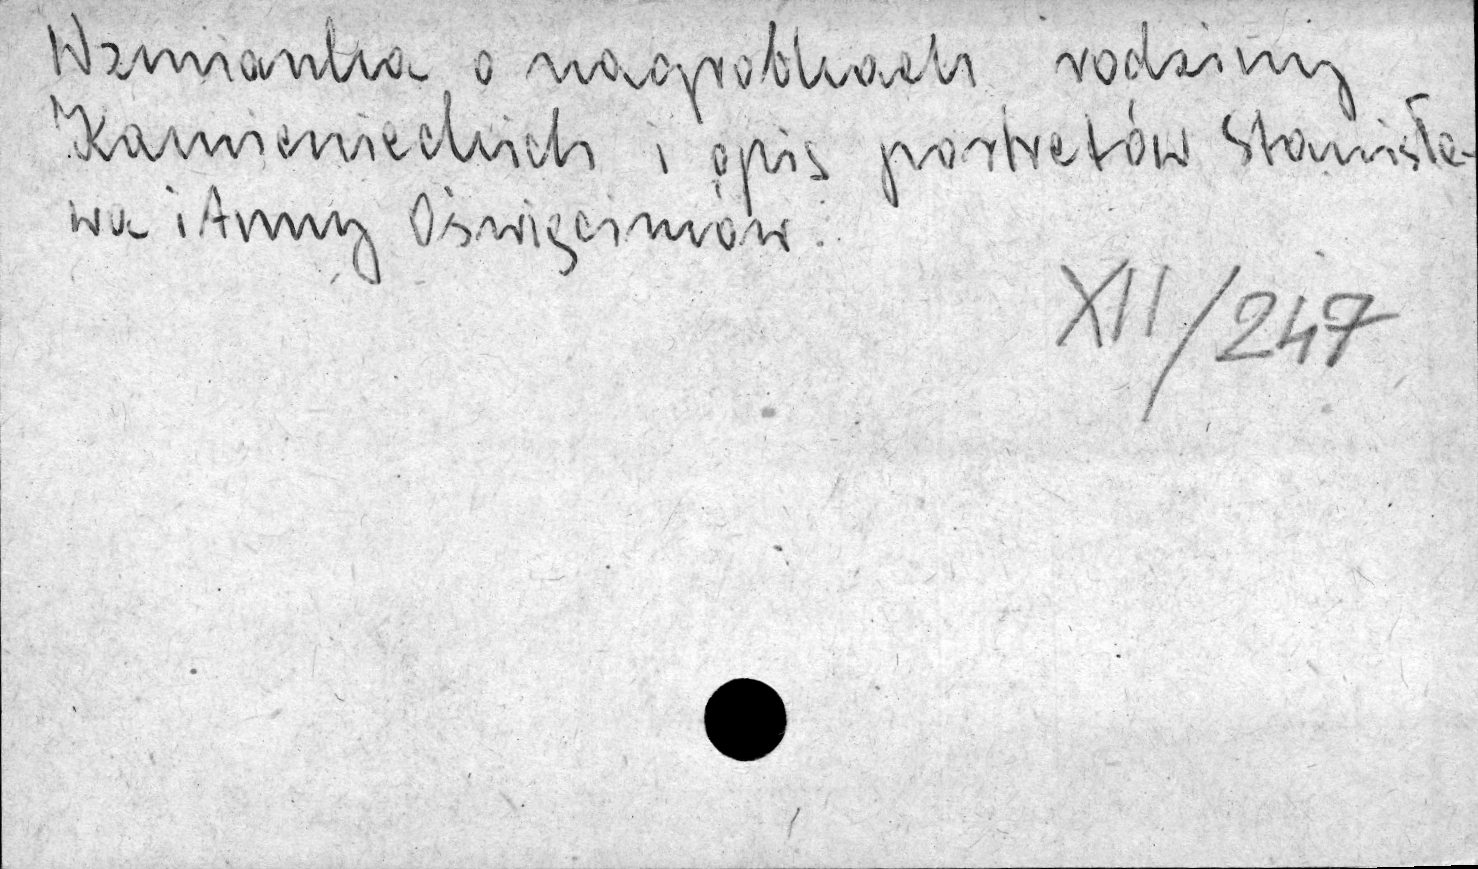 Wzmianka o nagrobkach rodziny
Kamienieckich i opis portretów Stanisła-
wa i Anny Oświęcimów.
XII/247